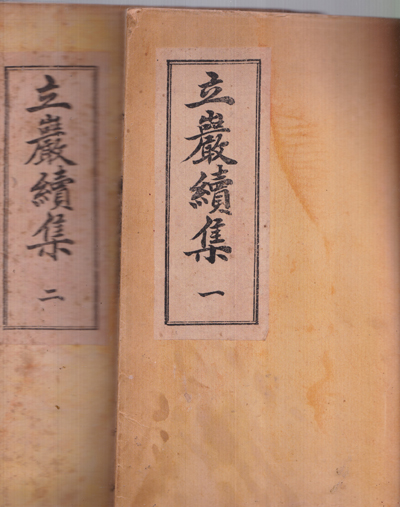 立巖續集 一
立巖續集 二